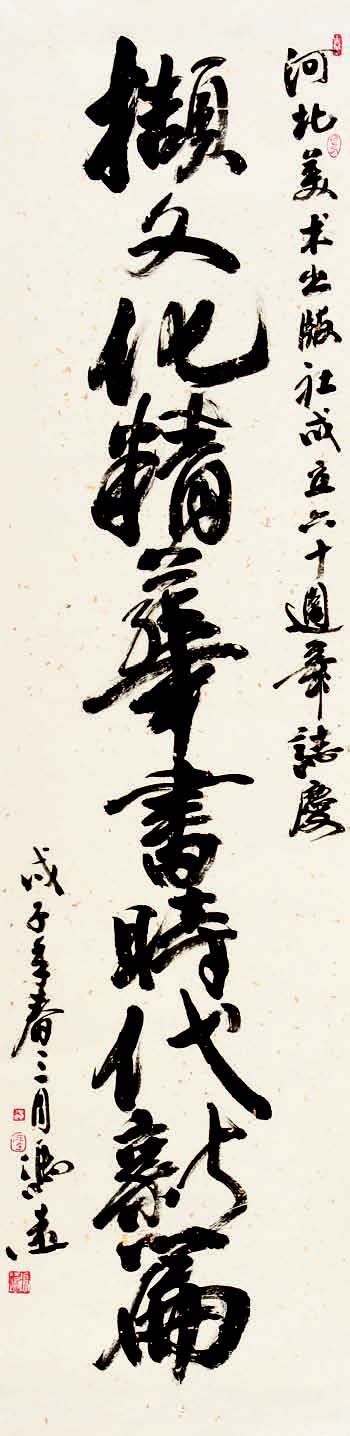 河北美术出版社成立六十週年誌慶
擷文化精華書時代新篇
戊子年春三月馮遠